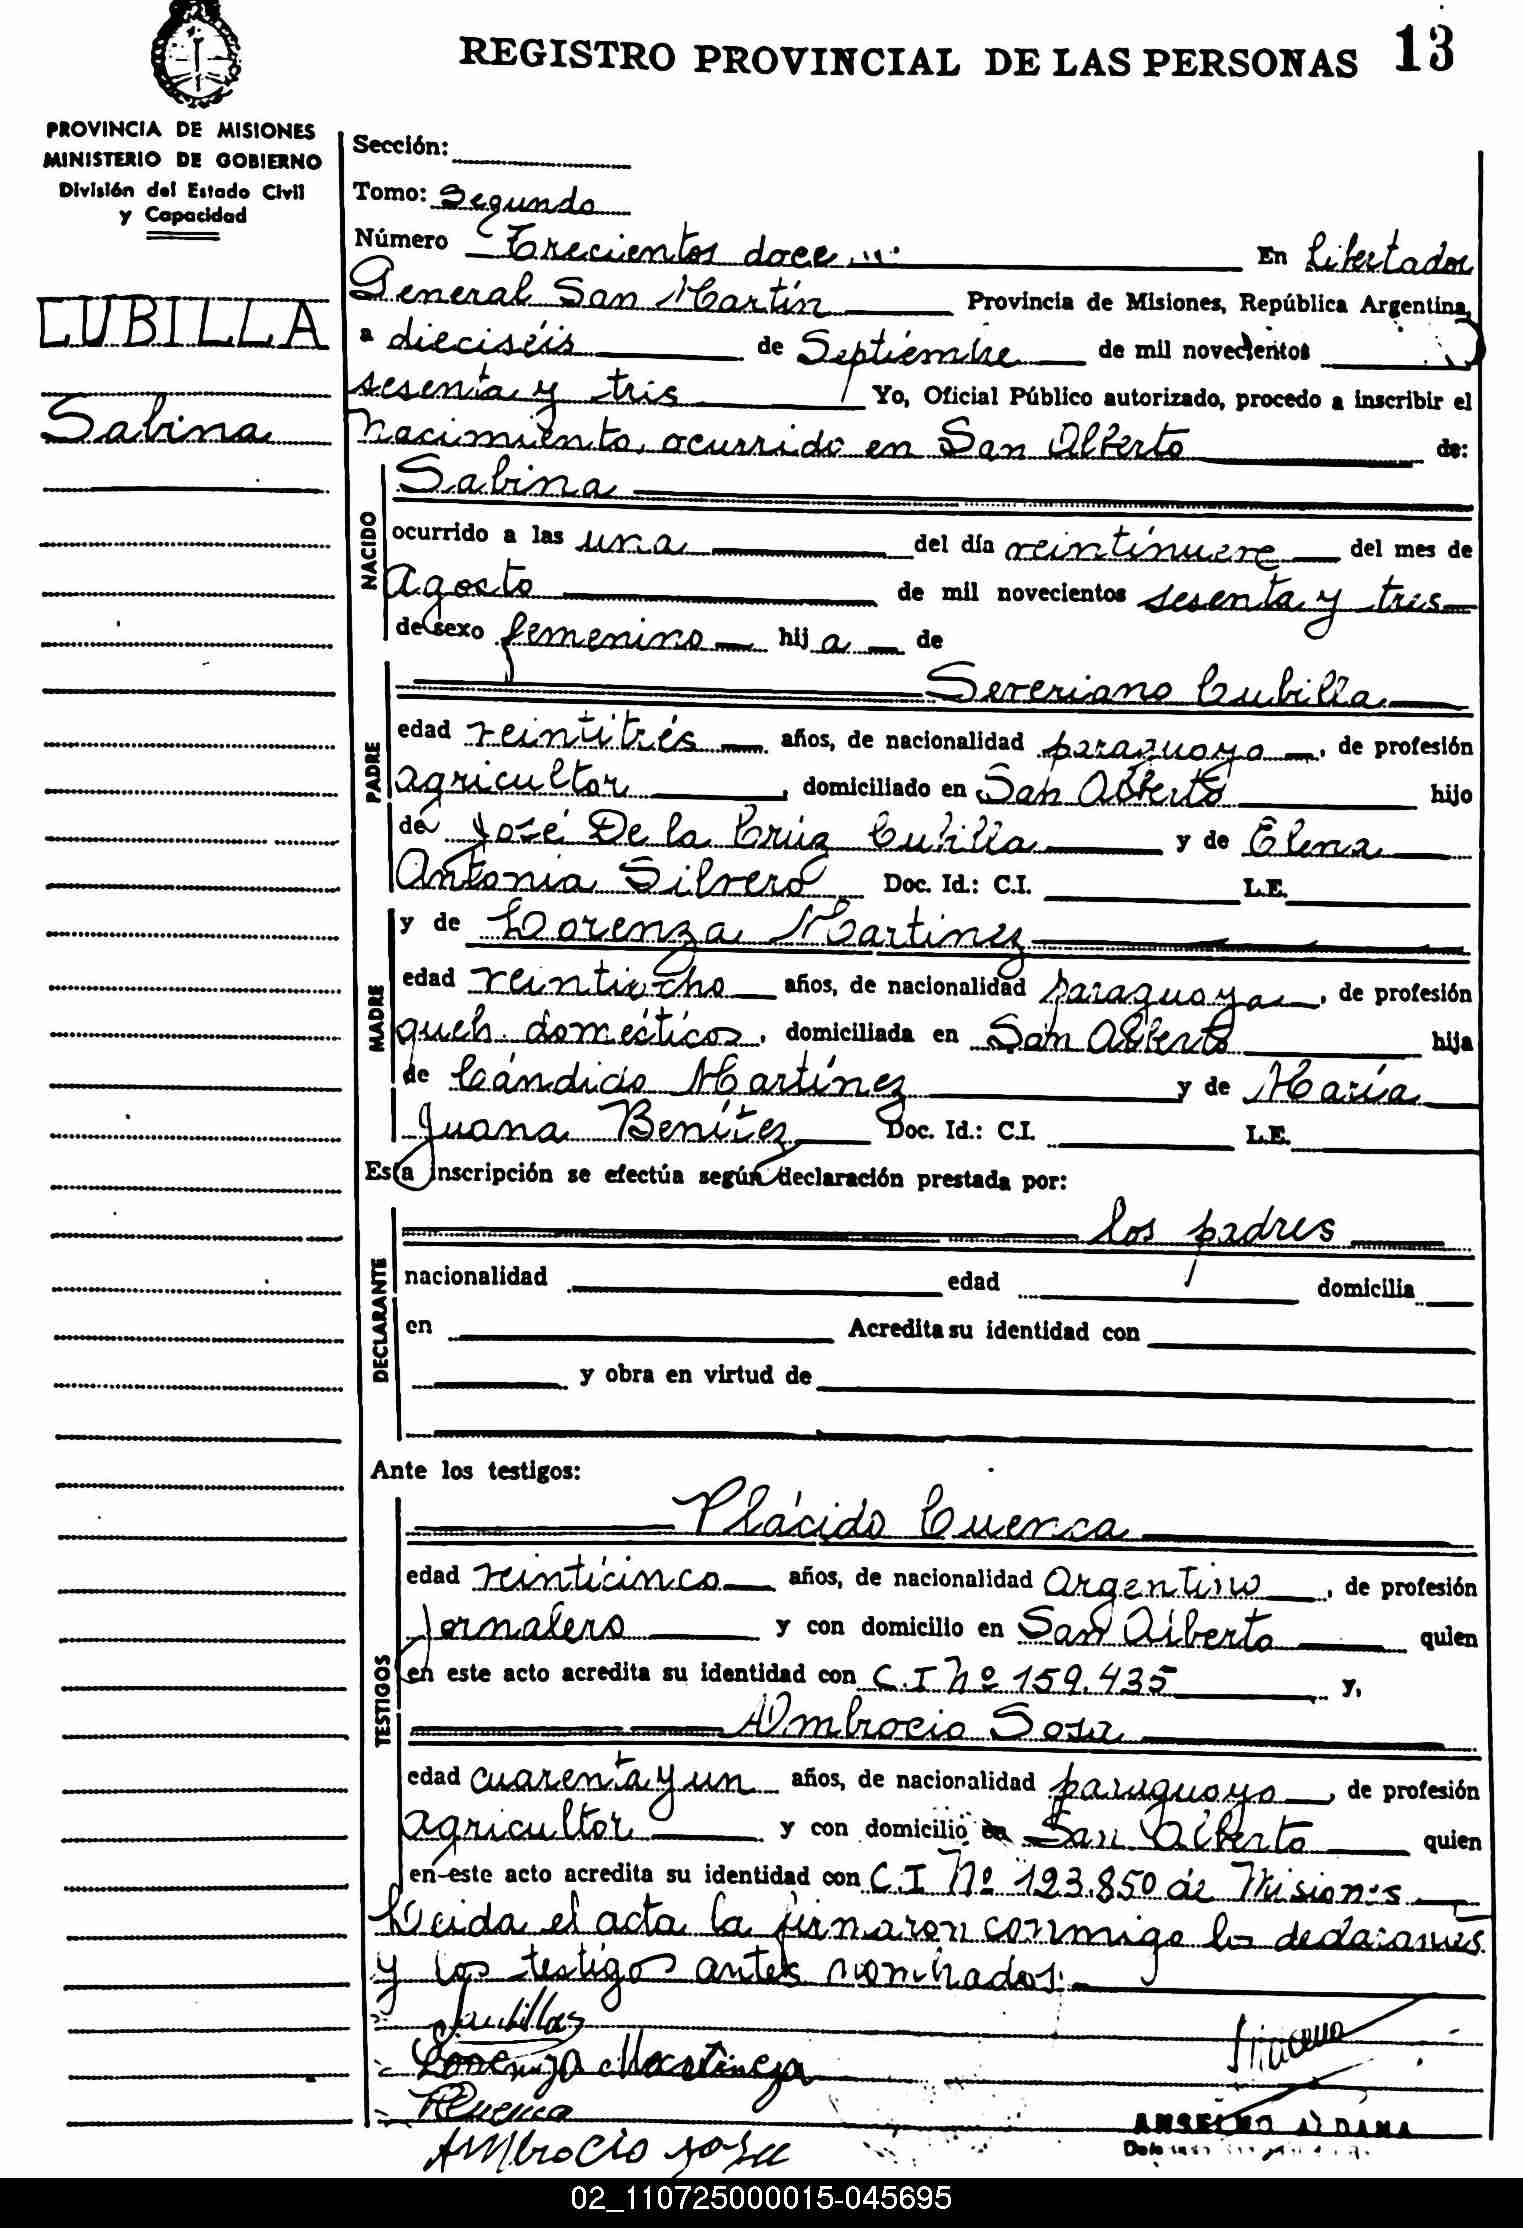 REGISTRO PROVINCIAL DE LAS PERSONAS 13
PROVINCIA DE MISIONES
MINISTERIO DE GOBIERNO
División del Estado Civil
y Capacidad
CUBILLA
Sabina
Sección:
Tomo: Segundo
Número Trecientos doce En Libertador
General San Martín Provincia de Misiones, República Argentina,
a dieciséis de Septiembre de mil novecientos
sesenta y tres Yo, Oficial Público autorizado, procedo a inscribir el
nacimiento, ocurrido en San Alberto de:
NACIDO
Sabina
ocurrido a las una del día veintinueve del mes de
Agosto de mil novecientos sesenta y tres
de sexo femenino hij a de
PADRE
Severiano Cubilla
edad veintitrés años, de nacionalidad paraguayo, de profesión
agricultor, domiciliado en San Alberto hijo
de José De la Crúz Cubilla y de Elena
Antonia Silvero Doc. Id.: C.I. L.E.
MADRE
y de Lorenza Martinez
edad veintiocho años, de nacionalidad paraguaya, de profesión
queh. domésticos, domiciliada en San Alberto hija
de Cándido Martínez y de María
Juana Benítez Doc. Id.: C.I. L.E.
Esta inscripción se efectúa según declaración prestada por:
DECLARANTE
los padres
nacionalidad edad domicilia
en Acredita su identidad con
y obra en virtud de
Ante los testigos:
TESTIGOS
Plácido Cuenca
edad veinticinco años, de nacionalidad Argentino, de profesión
Jornalero y con domicilio en San Alberto quien
en este acto acredita su identidad con C.I Nº 159.435 y,
Ambrocio Sosa
edad cuarenta y un años, de nacionalidad paraguayo, de profesión
agricultor y con domicilio en San Alberto quien
en este acto acredita su identidad con C.I Nº 123.850 de Misiones
Leida el acta la firmaron conmigo los declarantes
y los testigos antes nombrados.
Lorenza Martinez
PCuenca
Ambrocio Sosa
ANSELMO ALDANA
02_110725000015-045695